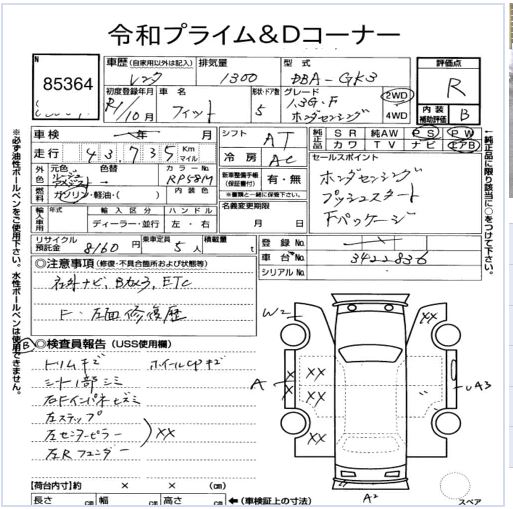 令和プライム＆Dコーナー
N
85364
車歴 (自家用以外は記入)
レンタ
排気量
1300
型式
DBA-GK3
評価点
R
初度登録年月
R1/10月
車名
フィット
形状・ドア数
5
グレード
1.3G・F
ホンダセンシング
2WD
4WD
内装
補助評価
B
車検 年 月
走行 43,735 Km マイル
シフト AT
冷房 AC
純正品 SR 純AW PS PW
カワ TV ナビ エアB
外装 元色 色替 カラーNo. RP58M
燃料 ガソリン・軽油・( ) 内装色
新車整備手帳 (保証書付) 有・無
※書類と一緒に保管下さい。
セールスポイント
ホンダセンシング
プッシュスタート
Fパッケージ
輸入車用 年式 輸入区分 ハンドル
ディーラー・並行 左・右
名義変更期限
月 日
リサイクル預託金 8160円 乗定員 5人 積載量 t
登録No.
車台No. 3422836
シリアルNo.
◎注意事項 (修復・不具合箇所および状態等)
社外ナビ、Bカメラ、ETC
F・左面修復歴
◎検査員報告 (USS使用欄)
B
トリムキズ ホイールCPキズ
シート1部シミ
右Fインパネキズミ
左ステップ
左センターピラー XX
左Rフェンダー
W2
XX
A
XX
XX
XX
XX
XX
UA3
A2
スペア
【荷台内寸】約 × × (cm)
長さ cm 幅 cm 高さ cm ←(車検証上の寸法)
※必ず油性ボールペンをご使用下さい。水性ボールペンは使用できません。
←純正品に限り該当に○をつけて下さい。